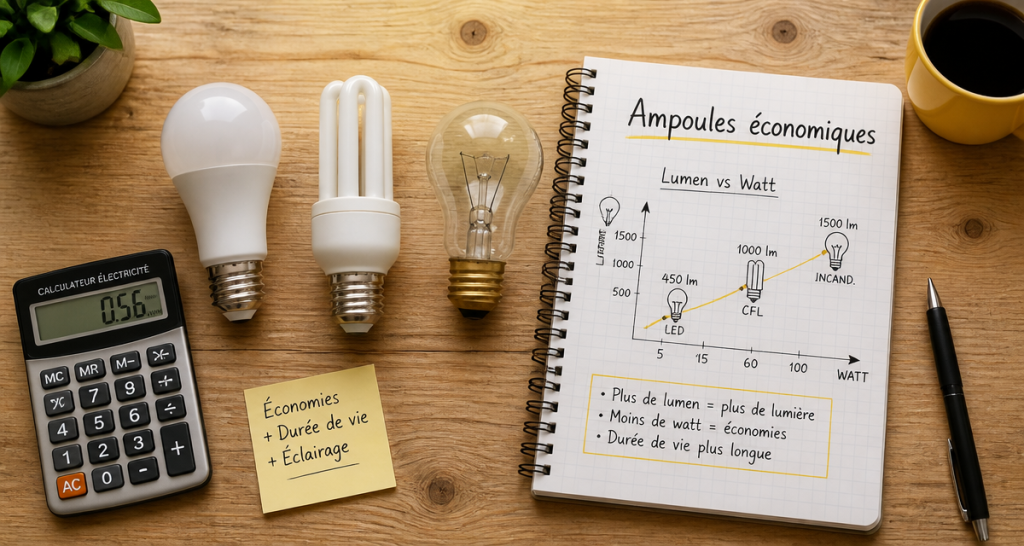 Ampoules économiques
Lumen vs Watt
1500 lm
1000 lm
450 lm
1500
1000
500
LED
CFL
INCAND.
5 15 60 100
WATT
• Plus de lumen = plus de lumière
• Moins de watt = économies
• Durée de vie plus longue
CALCULATEUR ÉLECTRICITÉ
0.56
MC MR M-
7 9 ÷
4 5 6 ÷
1 2 3 +
AC 0 -
Économies
+ Durée de vie
+ Éclairage